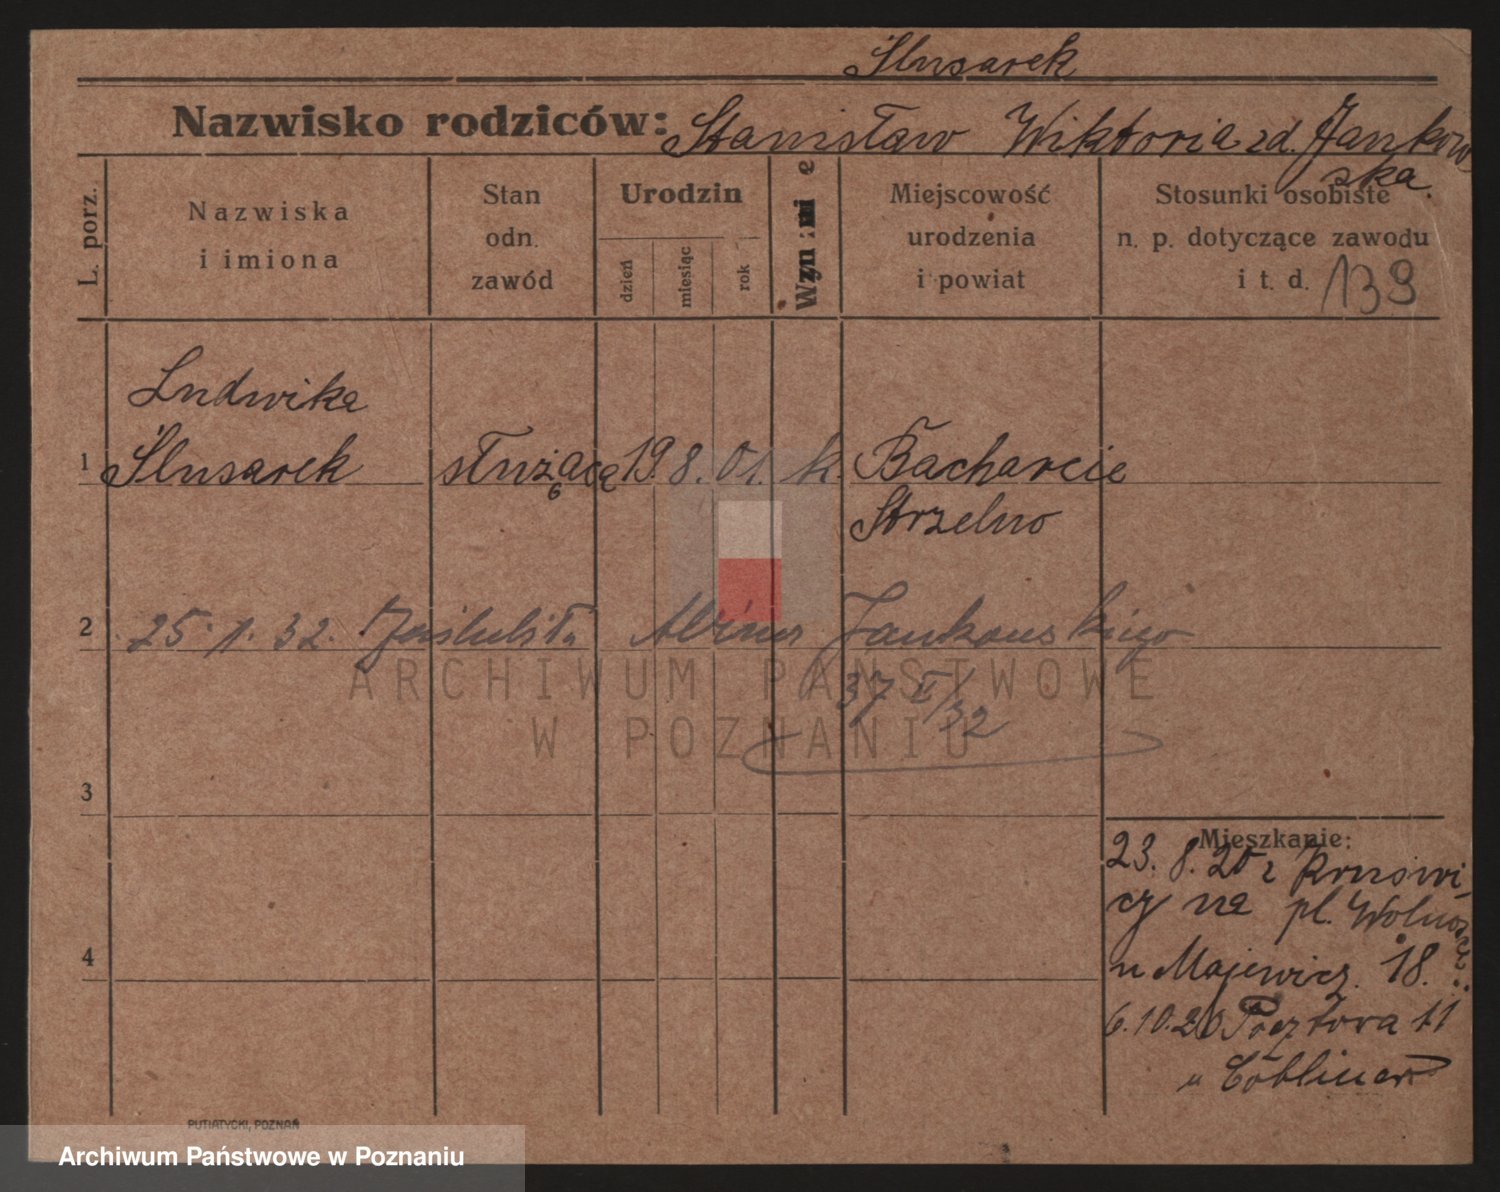 Ślusarek
Nazwisko rodziców: Stanisław Wiktoria zd. Jankow
ska.
L. porz.
Nazwiska
i imiona
Stan
odn.
zawód
Urodzin
dzień
miesiąc
rok
Wyznanie
Miejscowość
urodzenia
i powiat
Stosunki osobiste
n. p. dotyczące zawodu
i t. d. 139
Ludwika
1 Ślusarek służącą 19. 8. 01. k. Bacharcie
6
Strzelno
2 25. 1. 32. Jankowskiego
37 II/32
3
Mieszkanie:
23. 8. 20 z Kruświ-
cy na pl. Wolnoś
u Majewicz. 18.
4
6.10.20 Pocztowa 11
u
PUTIATYCKI, POZNAŃ
ARCHIWUM PAŃSTWOWE
W POZNANIU
Archiwum Państwowe w Poznaniu